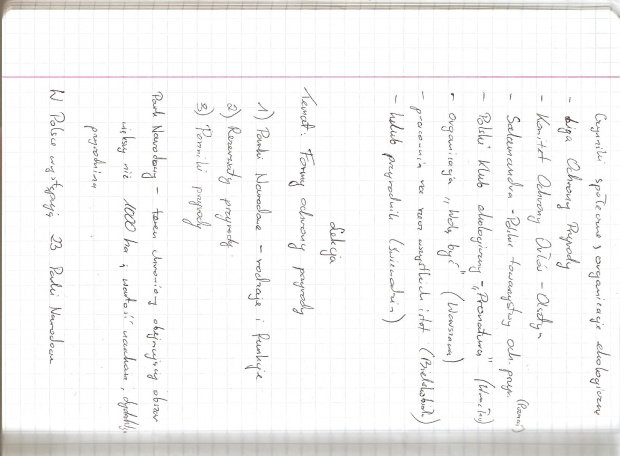 Czynniki społeczne, organizacje ekologiczne
- Liga Ochrony Przyrody
- Komitet Ochrony Orłów - Olsztyn
- Salamandra - Polskie towarzystwo och. przyr. (Poznań)
- Polski Klub ekologiczny - "Pronatura" (Wrocław)
- Organizacja "Wolę być" (Warszawa)
- pracownia na rzecz wszystkich istot (Bielsko Biała)
- klub przyrodnik (Świebodzin)
Lekcja
Temat: Formy ochrony przyrody
1) Parki Narodowe - rodzaje i funkcje
2) Rezerwaty przyrody
3) Pomniki przyrody
Park Narodowy - teren chroniony obejmujący obszar
większy niż 1000 ha, wartość naukowa,
przyrodnicza
W Polsce występują 23 Parki Narodowe